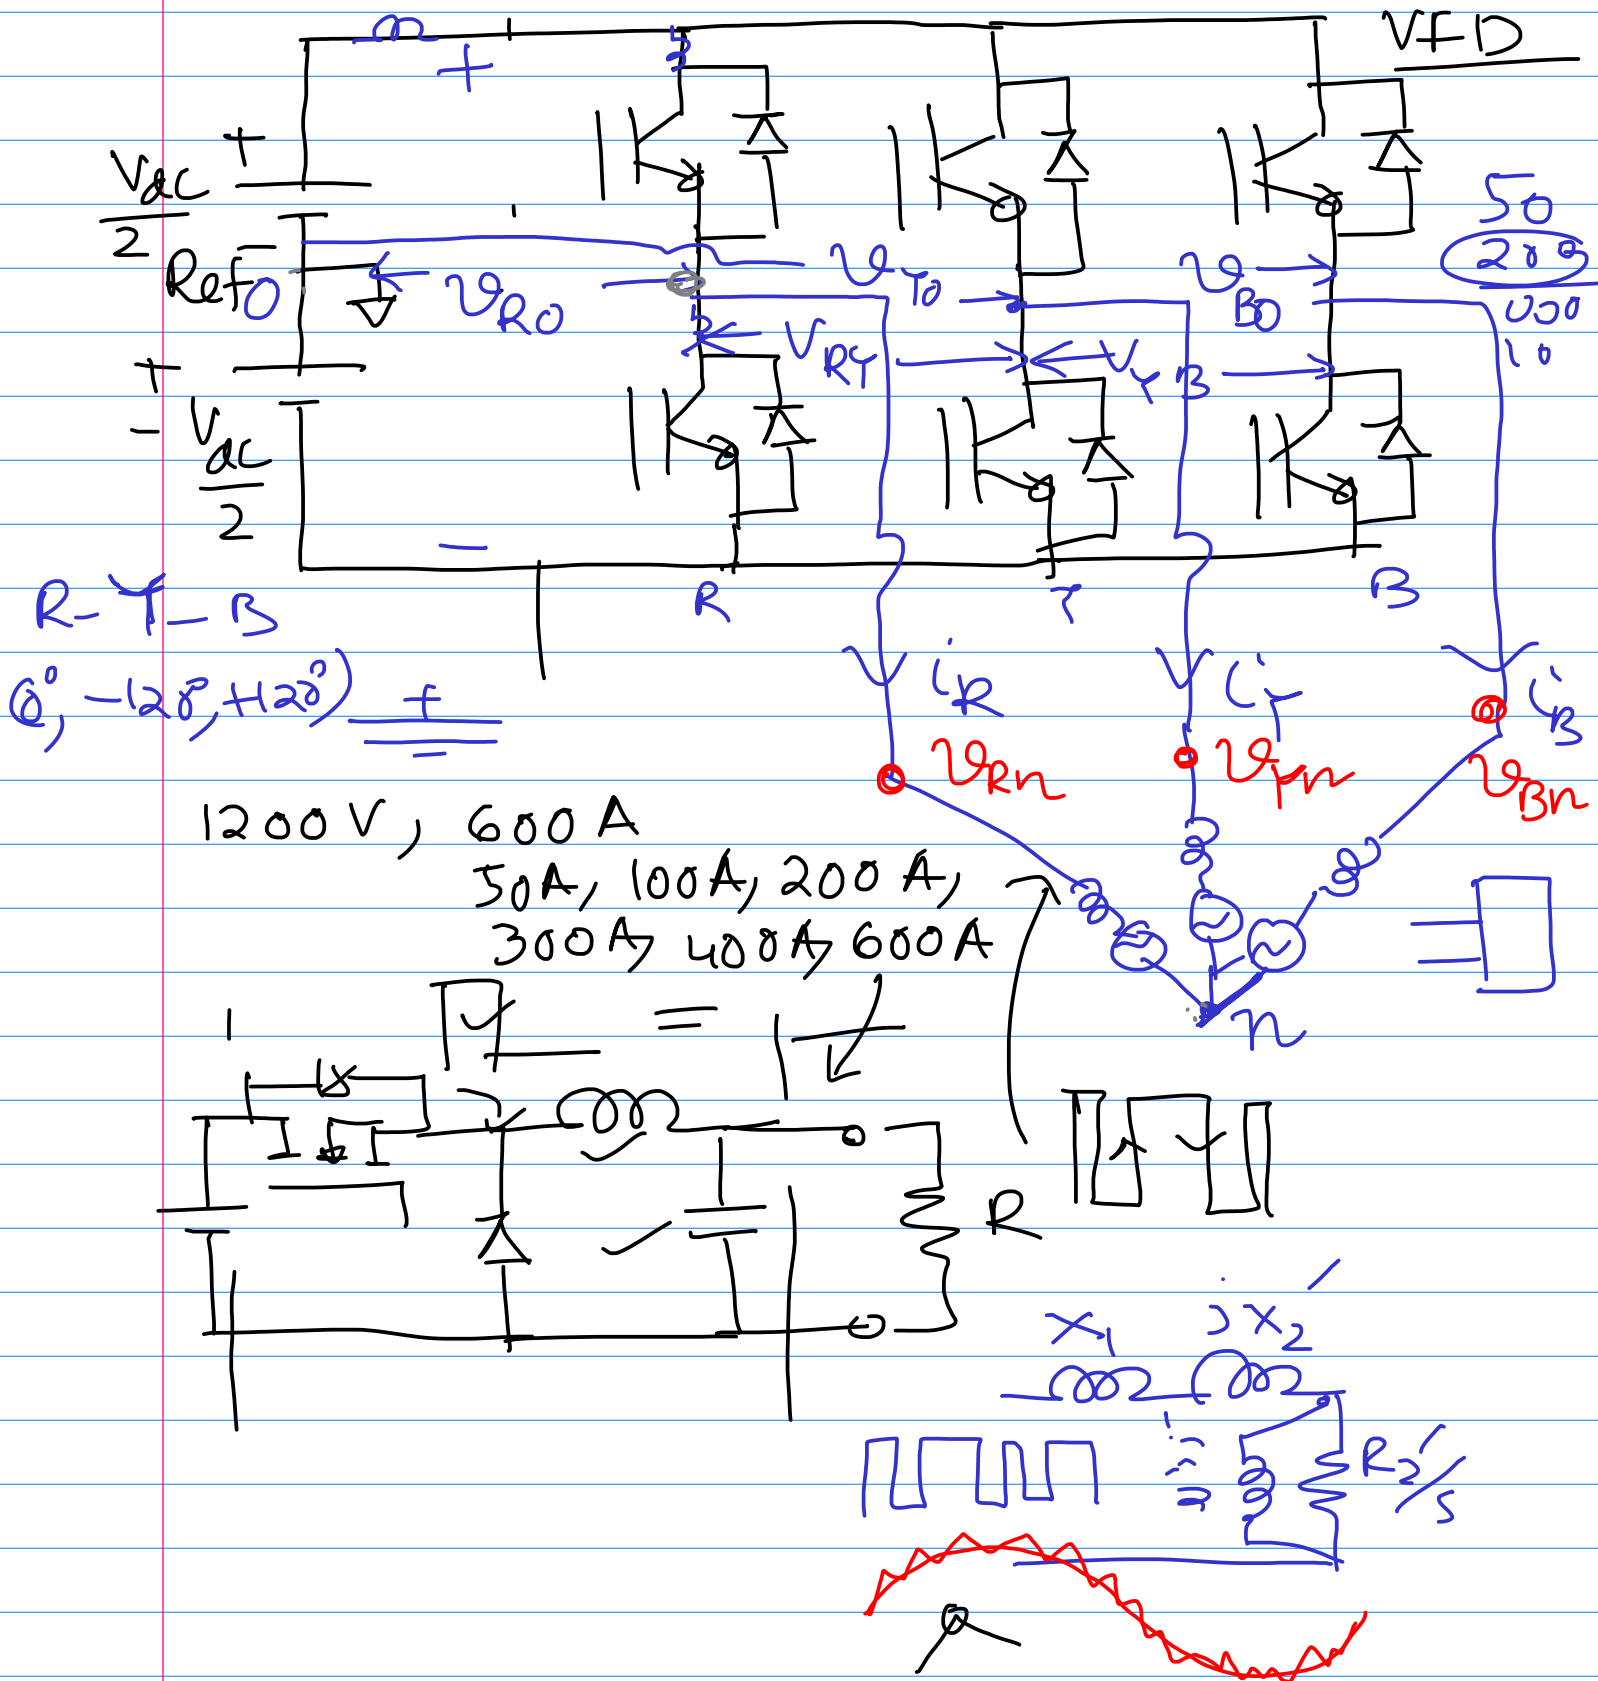 VFD
+
+
Vdc/2
50
200
000
10
Ref
0
v_R0
v_Y0
v_B0
V_RY
V_YB
+
- Vdc/2
-
R
Y
B
R-Y-B
(0°, -120°, +120°) +
i_R
i_Y
i_B
v_Rn
v_Yn
v_Bn
1200V, 600A
50A, 100A, 200A,
300A, 400A, 600A
n
R
X1
jX2'
R2'/s